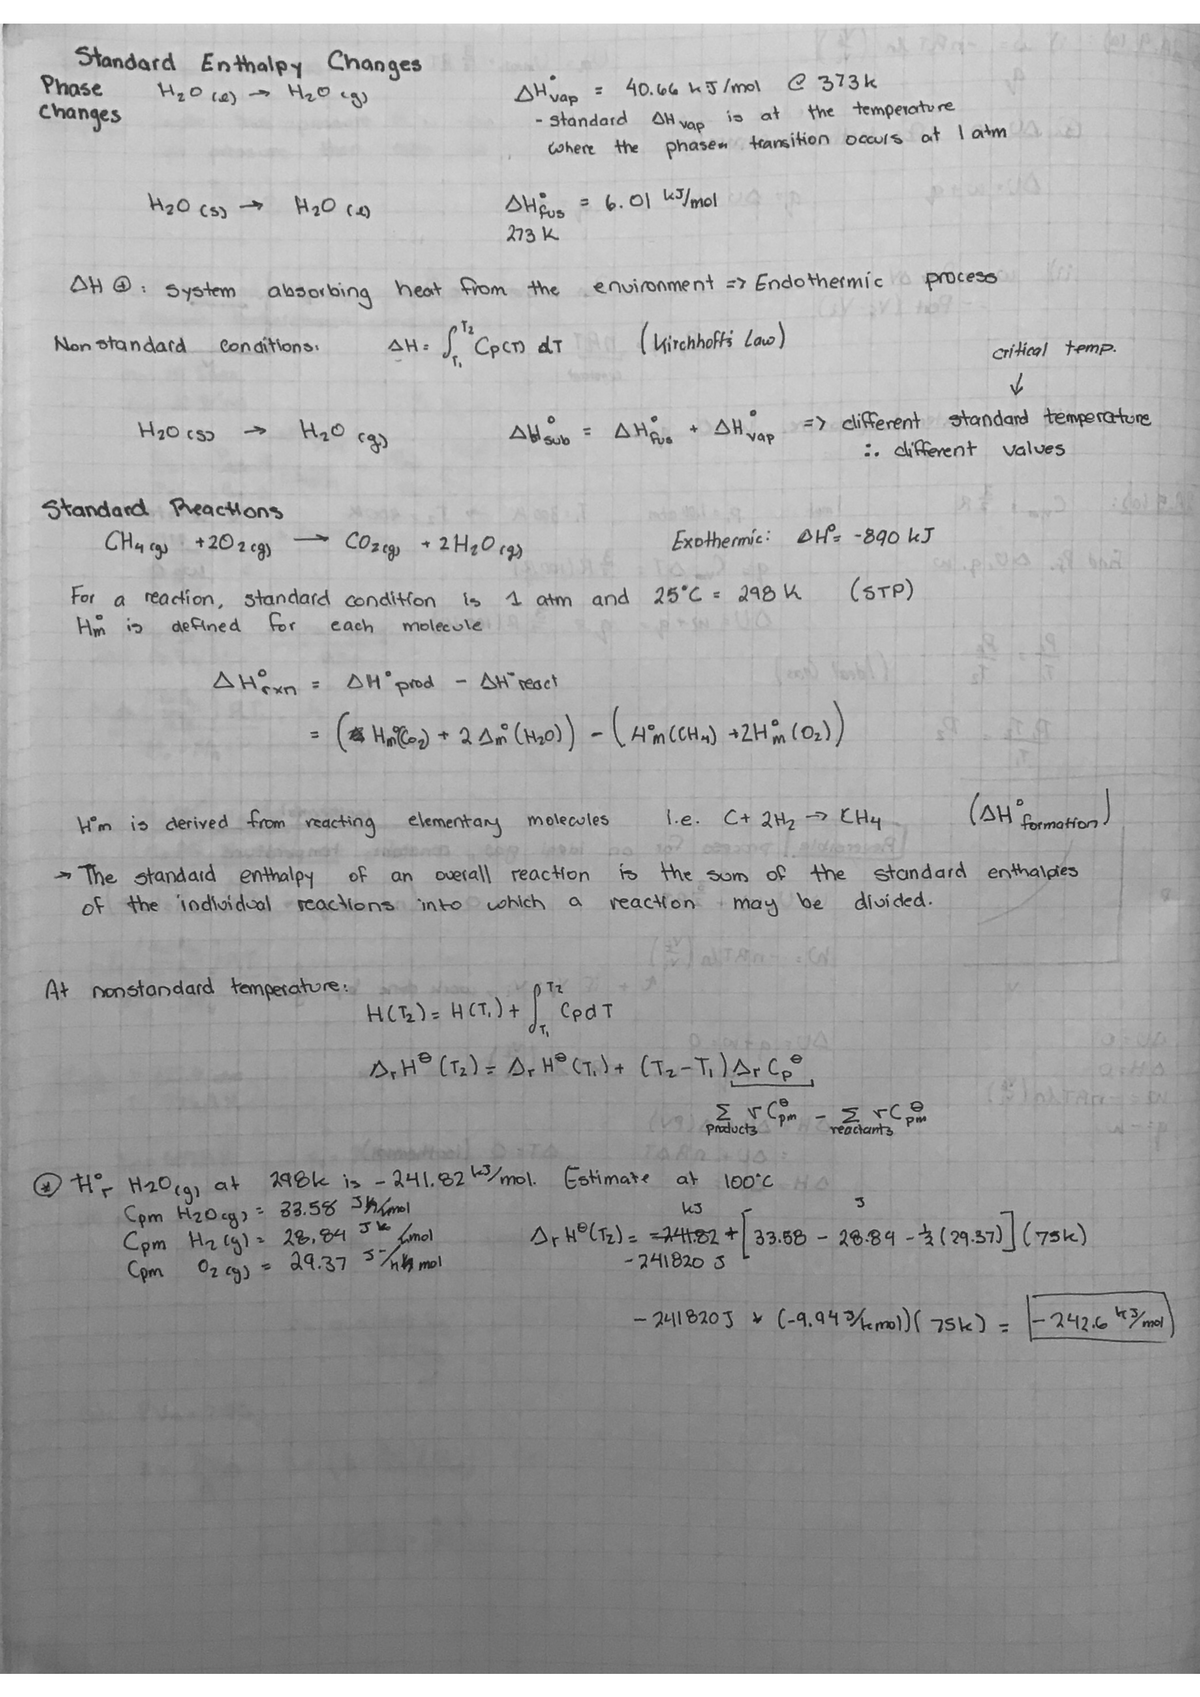 Standard Enthalpy Changes
Phase Changes H₂O (l) → H₂O (g) ΔH°vap = 40.66 kJ/mol @ 373k
- standard ΔH vap is at the temperature
where the phase transition occurs at 1 atm
H₂O (s) → H₂O (l) ΔH°fus = 6.01 kJ/mol
273 K
ΔH ⊕ : system absorbing heat from the environment => Endothermic process
Nonstandard conditions: ΔH = ∫T₁^T₂ Cp(T) dT (Kirchhoff's Law)
critical temp.
↓
H₂O (s) → H₂O (g) ΔH°sub = ΔH°fus + ΔH°vap => different standard temperature
∴ different values
Standard Reactions
CH₄ (g) + 2O₂ (g) → CO₂ (g) + 2H₂O (g) Exothermic: ΔH° = -890 kJ
For a reaction, standard condition is 1 atm and 25°C = 298 K (STP)
H°m is defined for each molecule
ΔH°rxn = ΔH°prod - ΔH°react
= (H°m(CO₂) + 2Δm°(H₂O)) - (H°m(CH₄) + 2H°m(O₂))
H°m is derived from reacting elementary molecules i.e. C + 2H₂ → CH₄ (ΔH°formation)
→ The standard enthalpy of an overall reaction is the sum of the standard enthalpies
of the individual reactions into which a reaction may be divided.
At nonstandard temperature:
H(T₂) = H(T₁) + ∫T₁^T₂ CpdT
ΔrH⊖(T₂) = ΔrH⊖(T₁) + (T₂-T₁) ΔrCp⊖
Σ products r Cpm⊖ - Σ reactants r Cpm⊖
⊛ H°r H₂O(g) at 298k is -241.82 kJ/mol. Estimate at 100°C
Cpm H₂O(g) = 33.58 J/kmol
Cpm H₂(g) = 28.84 J k /mol
Cpm O₂(g) = 29.37 J/k mol
kJ J
ΔrH⊖(T₂) = -241.82 + [33.58 - 28.84 - ½(29.37)] (75k)
-241820 J
-241820J + (-9.94 J/kmol)(75k) = -242.6 kJ/mol